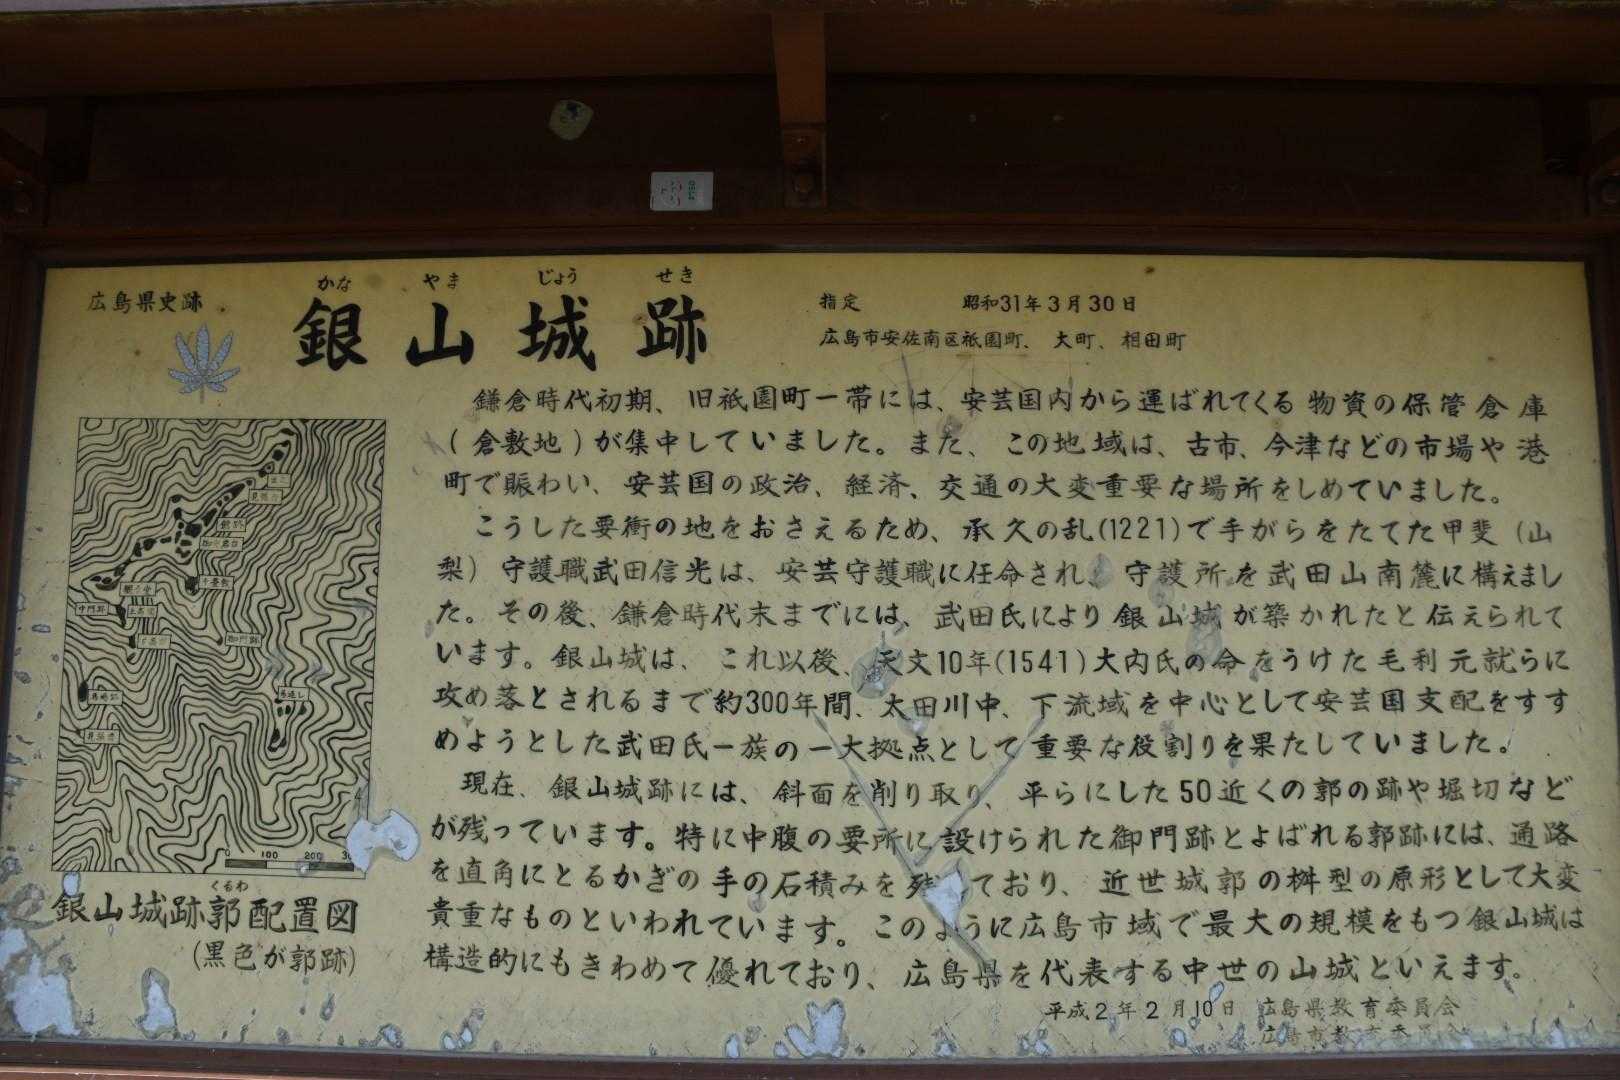 広島県史跡
かな やま じょう せき
銀山城跡
指定 昭和31年3月30日
広島市安佐南区祇園町、大町、相田町
鎌倉時代初期、旧祇園町一帯には、安芸国内から運ばれてくる物資の保管倉庫
(倉敷地)が集中していました。また、この地域は、古市、今津などの市場や港
町で賑わい、安芸国の政治、経済、交通の大変重要な場所をしめていました。
こうした要衝の地をおさえるため、承久の乱(1221)で手がらをたてた甲斐(山
梨)守護職武田信光は、安芸守護職に任命され、守護所を武田山南麓に構えまし
た。その後、鎌倉時代末までには、武田氏により銀山城が築かれたと伝えられて
います。銀山城は、これ以後、天文10年(1541)大内氏の命をうけた毛利元就らに
攻め落とされるまで約300年間、太田川中、下流域を中心として安芸国支配をすす
めようとした武田氏一族の一大拠点として重要な役割りを果たしていました。
現在、銀山城跡には、斜面を削り取り、平らにした50近くの郭の跡や堀切など
が残っています。特に中腹の要所に設けられた御門跡とよばれる郭跡には、通路
を直角にとるかぎの手の石積みを残 ており、近世城郭の桝型の原形として大変
貴重なものといわれています。このように広島市域で最大の規模をもつ銀山城は
構造的にもきわめて優れており、広島県を代表する中世の山城といえます。
平成2年2月10日 広島県教育委員会
広島市教育委員会
見張台
館跡
御守岩台
千畳敷
観音堂
中門跡
上高間
下高間
御門跡
馬場跡
馬返し
見張台
0 100 200
くるわ
銀山城跡郭配置図
(黒色が郭跡)